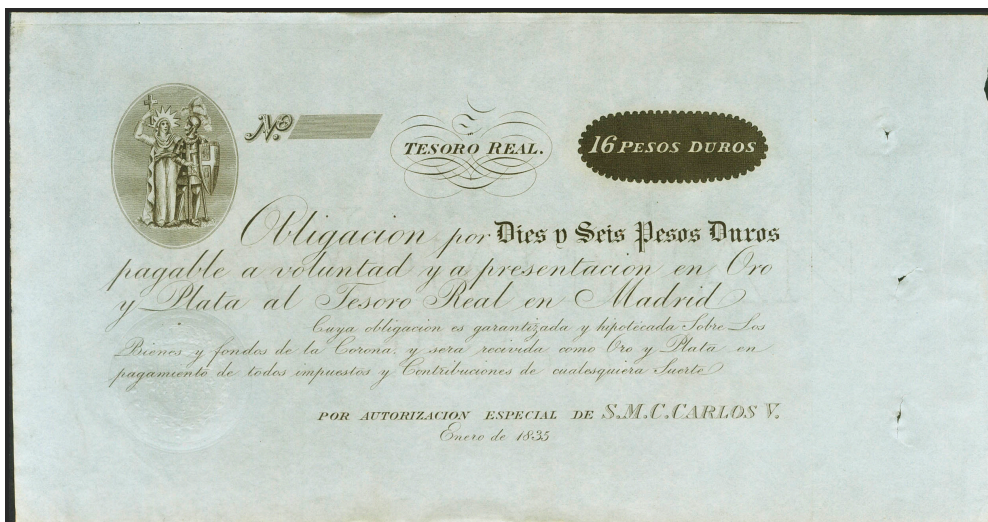 No.
TESORO REAL.
16 PESOS DUROS
Obligacion por Dies y Seis Pesos Duros
pagable a voluntad y a presentacion en Oro
y Plata al Tesoro Real en Madrid
Cuya obligacion es garantizada y hipotecada Sobre Los
Bienes y fondos de la Corona, y sera recivida como Oro y Plata en
pagamiento de todos impuestos y Contribuciones de cualesquiera Suerte
POR AUTORIZACION ESPECIAL DE S.M.C. CARLOS V.
Enero de 1835